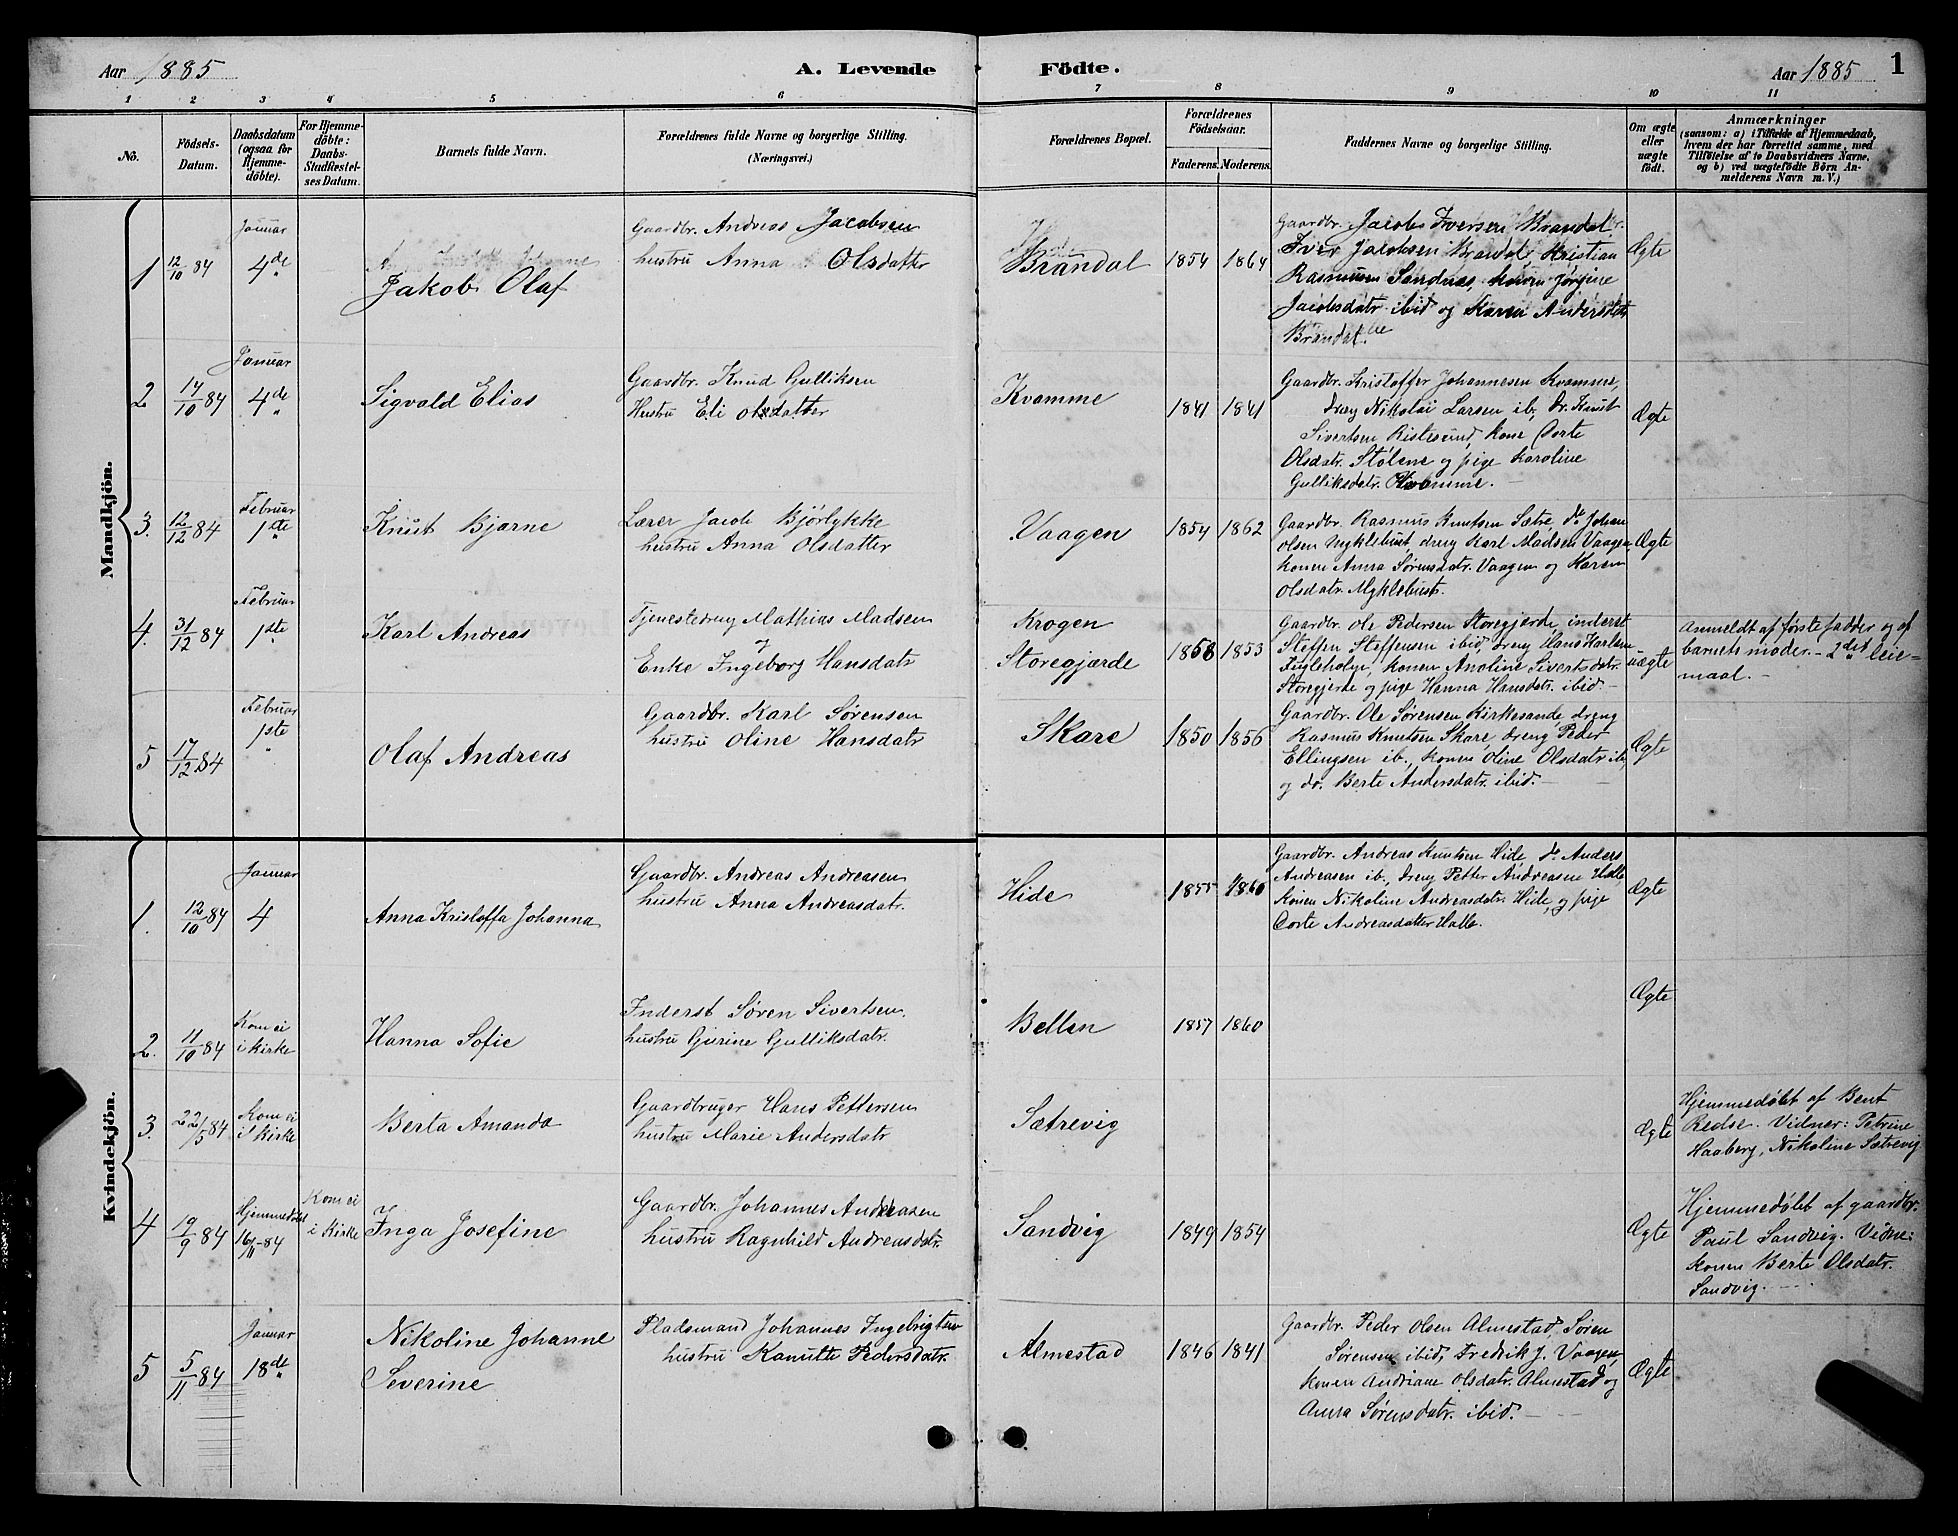 Aar 1885
A. Levende
Födte.
Aar 1885
1
1 2 3 4 5 6 7 8 9 10 11
No.
Födsels-
Datum.
Daabsdatum
(ogsaa for
Hjemme-
döbte).
For Hjemme-
döbte:
Daabs-
Stadfæstel-
ses Datum.
Barnets fulde Navn.
Forældrenes fulde Navne og borgerlige Stilling.
(Næringsvei.)
Forældrenes Bopæl.
Forældrenes
Födselsaar.
Faderens. Moderens.
Faddernes Navne og borgerlige Stilling.
Om ægte
eller
uægte
födt.
Anmærkninger
(saasom: a) i Tilfælde af Hjemmedaab,
hvem der har forrettet samme, med
Tilföielse af to Daabsvidners Navne,
og b) ved uægtefödte Börn An-
melderens Navn m. V.)
Mandkjön.
1
12/10 84
Januar
4de
Jakob Olaf
Gaardbr. Andreas Jacobsen
hustru Anna Olsdatter
Brandal
1854 1864
Gaardbr. Jacob Iversen Brandal
Iver Jacobsen Brandal, Kristian
Rasmusen Sandnæs, konen Jørgine
Jacobsdatr. ibid og Karen Andersdatr
Brandal.
Ægte
2
14/10 84
Januar
4de
Sigvald Elias
Gaardbr. Knud Gulliksen
Hustru Eli Olsdatter
Kvamme
1841 1841
Gaardbr. Kristoffer Johannesen Kvamme,
dreng Nikolai Larsen ib, Dr. Knut
Sivertsen Ristesund, kone Dorte
Olsdatr. Stølene og pige Karoline
Gulliksdatr. Kvamme.
Ægte
3.
12/12 84
Februar
1ste
Knut Bjarne
Lærer Jacob Bjørlykke
hustru Anna Olsdatter
Vaagen
1854 1862
Gaardbr. Rasmus Knutsen Sætre, do Johan
Olsen Myklebust, dreng Karl Madsen Vaagen,
konen Anna Sørensdatr. Vaagen og Karen
Olsdatr. Myklebust.
Ægte
4.
31/12 84
Februar
1ste
Karl Andreas
Tjenestedreng Mathias Madsen
og
Enke Ingeborg Hansdatr
Krogen
Storegjærde
1858 1853
Gaardbr. Ole Pedersen Storegjærde, inderst
Steffen Steffensen ibid, dreng Hans Karlsen
Fugleholm, konen Anoline Sivertsdatr.
Storegjerde og pige Hanna Hansdatr. ibid. -
uægte
Anmeldt af første fadder og af
barnets moder. - 2det leie-
maal. -
5
17/12 84
Februar
1ste
Olaf Andreas
Gaardbr. Karl Sørensen
hustru Oline Hansdatr
Skare
1850 1856
Gaardbr. Ole Sørensen Kirkesande, dreng
Rasmus Knutsen Skare, dreng Peder
Ellingsen ib., konen Oline Olsdatr ib,
og do. Berte Andersdatr. ibid. -
Ægte
Kvindekjön.
1.
12/10 84
Januar
4
Anna Kristoffa Johanna
Gaardbr. Andreas Andreasen
hustru Anna Andreasdatr.
Hide
1855 1860
Gaardbr. Andreas Knutsen Hide, do Anders
Andreasen ib., dreng Petter Andreasen Halle,
konen Nikoline Andreasdatr. Hide, og pige
Dorte Andreasdatter Halle.
Ægte
2.
11/10 84
Kom ei
i kirke
Hanna Sofie
Inderst Søren Sivertsen.
hustru Gurine Gulliksdatr.
Bellen
1857 1860
Ægte
3.
22/5 84
Kom ei
i kirke
Berta Amanda
Gaardbruger Hans Pettersen
hustru Marie Andersdatr
Sætrevig
Ægte
Hjemmedøbt af Bent
Redse. Vidner: Petrine
Haaberg, Nikoline Sætrevig
4
19/9 84
Hjemmedøbt
16/11-84
Kom ei
i kirke
Inga Josefine
Gaardbr. Johannes Andreasen
hustru Ragnhild Andreasdatr.
Sandvig
1849 1854
Ægte
Hjemmedøbt af gaardbr.
Paul Sandvig. Vidne:
konen Berte Olsdatr.
Sandvig.
5
5/11 84
Januar
18de
Nikoline Johanne
Severine
Pladsmand Johannes Ingebrigtsen
hustru Kanutte Pedersdatr.
Almestad
1846 1841
Gaardbr. Peder Olsen Almestad, Søren
Sørensen ibid, Fredrik J. Vaagen,
konen Andriane Olsdatr. Almestad og
Anna Sørensdatr. ibid. -
Ægte